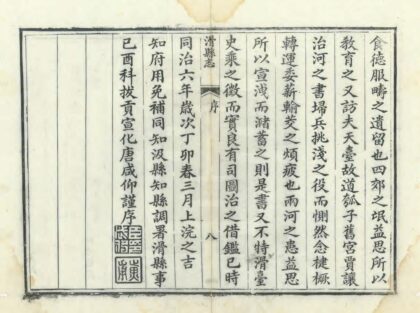 食德服疇之遺留也四郊之氓益思所以
教育之又訪夫天臺故道瓠子舊宮賈讓
治河之書埽兵挑淺之役而惻然念楗橛
轉運委薪輸茭之煩疲也兩河之患益思
所以宣洩而瀦蓄之則是書又不特滑臺
史乘之徵而實良有司圖治之借鑑已時
滑縣志
序
八
同治六年歲次丁卯春三月上浣之吉
知府用免補同知汲縣知縣調署滑縣事
己酉科拔貢宣化唐咸仰謹序